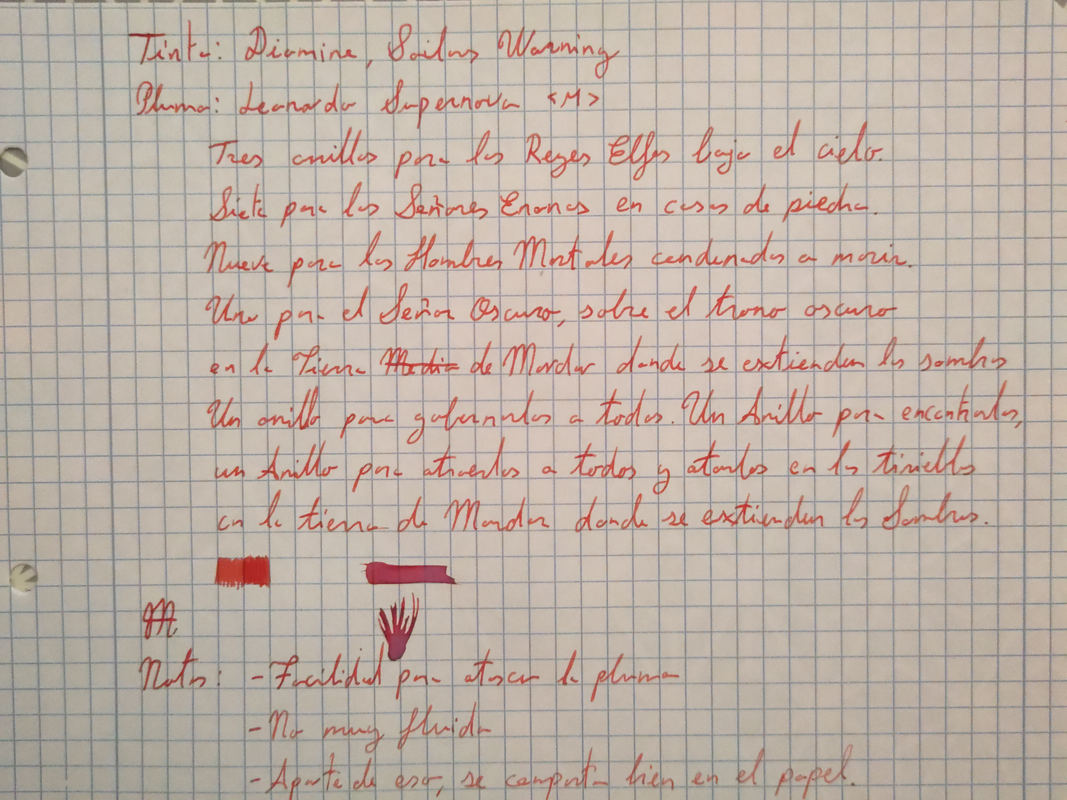 Tinta: Diamine, Sailors Warning
Pluma: Leonardo Supernova <M>
Tres anillos para los Reyes Elfos bajo el cielo.
Siete para los Señores Enanos en casas de piedra.
Nueve para los Hombres Mortales condenados a morir.
Uno para el Señor Oscuro, sobre el trono oscuro
en la Tierra Media de Mordor donde se extienden las sombras
Un anillo para gobernarlos a todos. Un Anillo para encontrarlos,
un Anillo para atraerlos a todos y atarlos en las tinieblas
en la tierra de Mordor donde se extienden las Sombras.
Notas: - Facilidad para atascar la pluma
- No muy fluida
- Aparte de eso, se comporta bien en el papel.